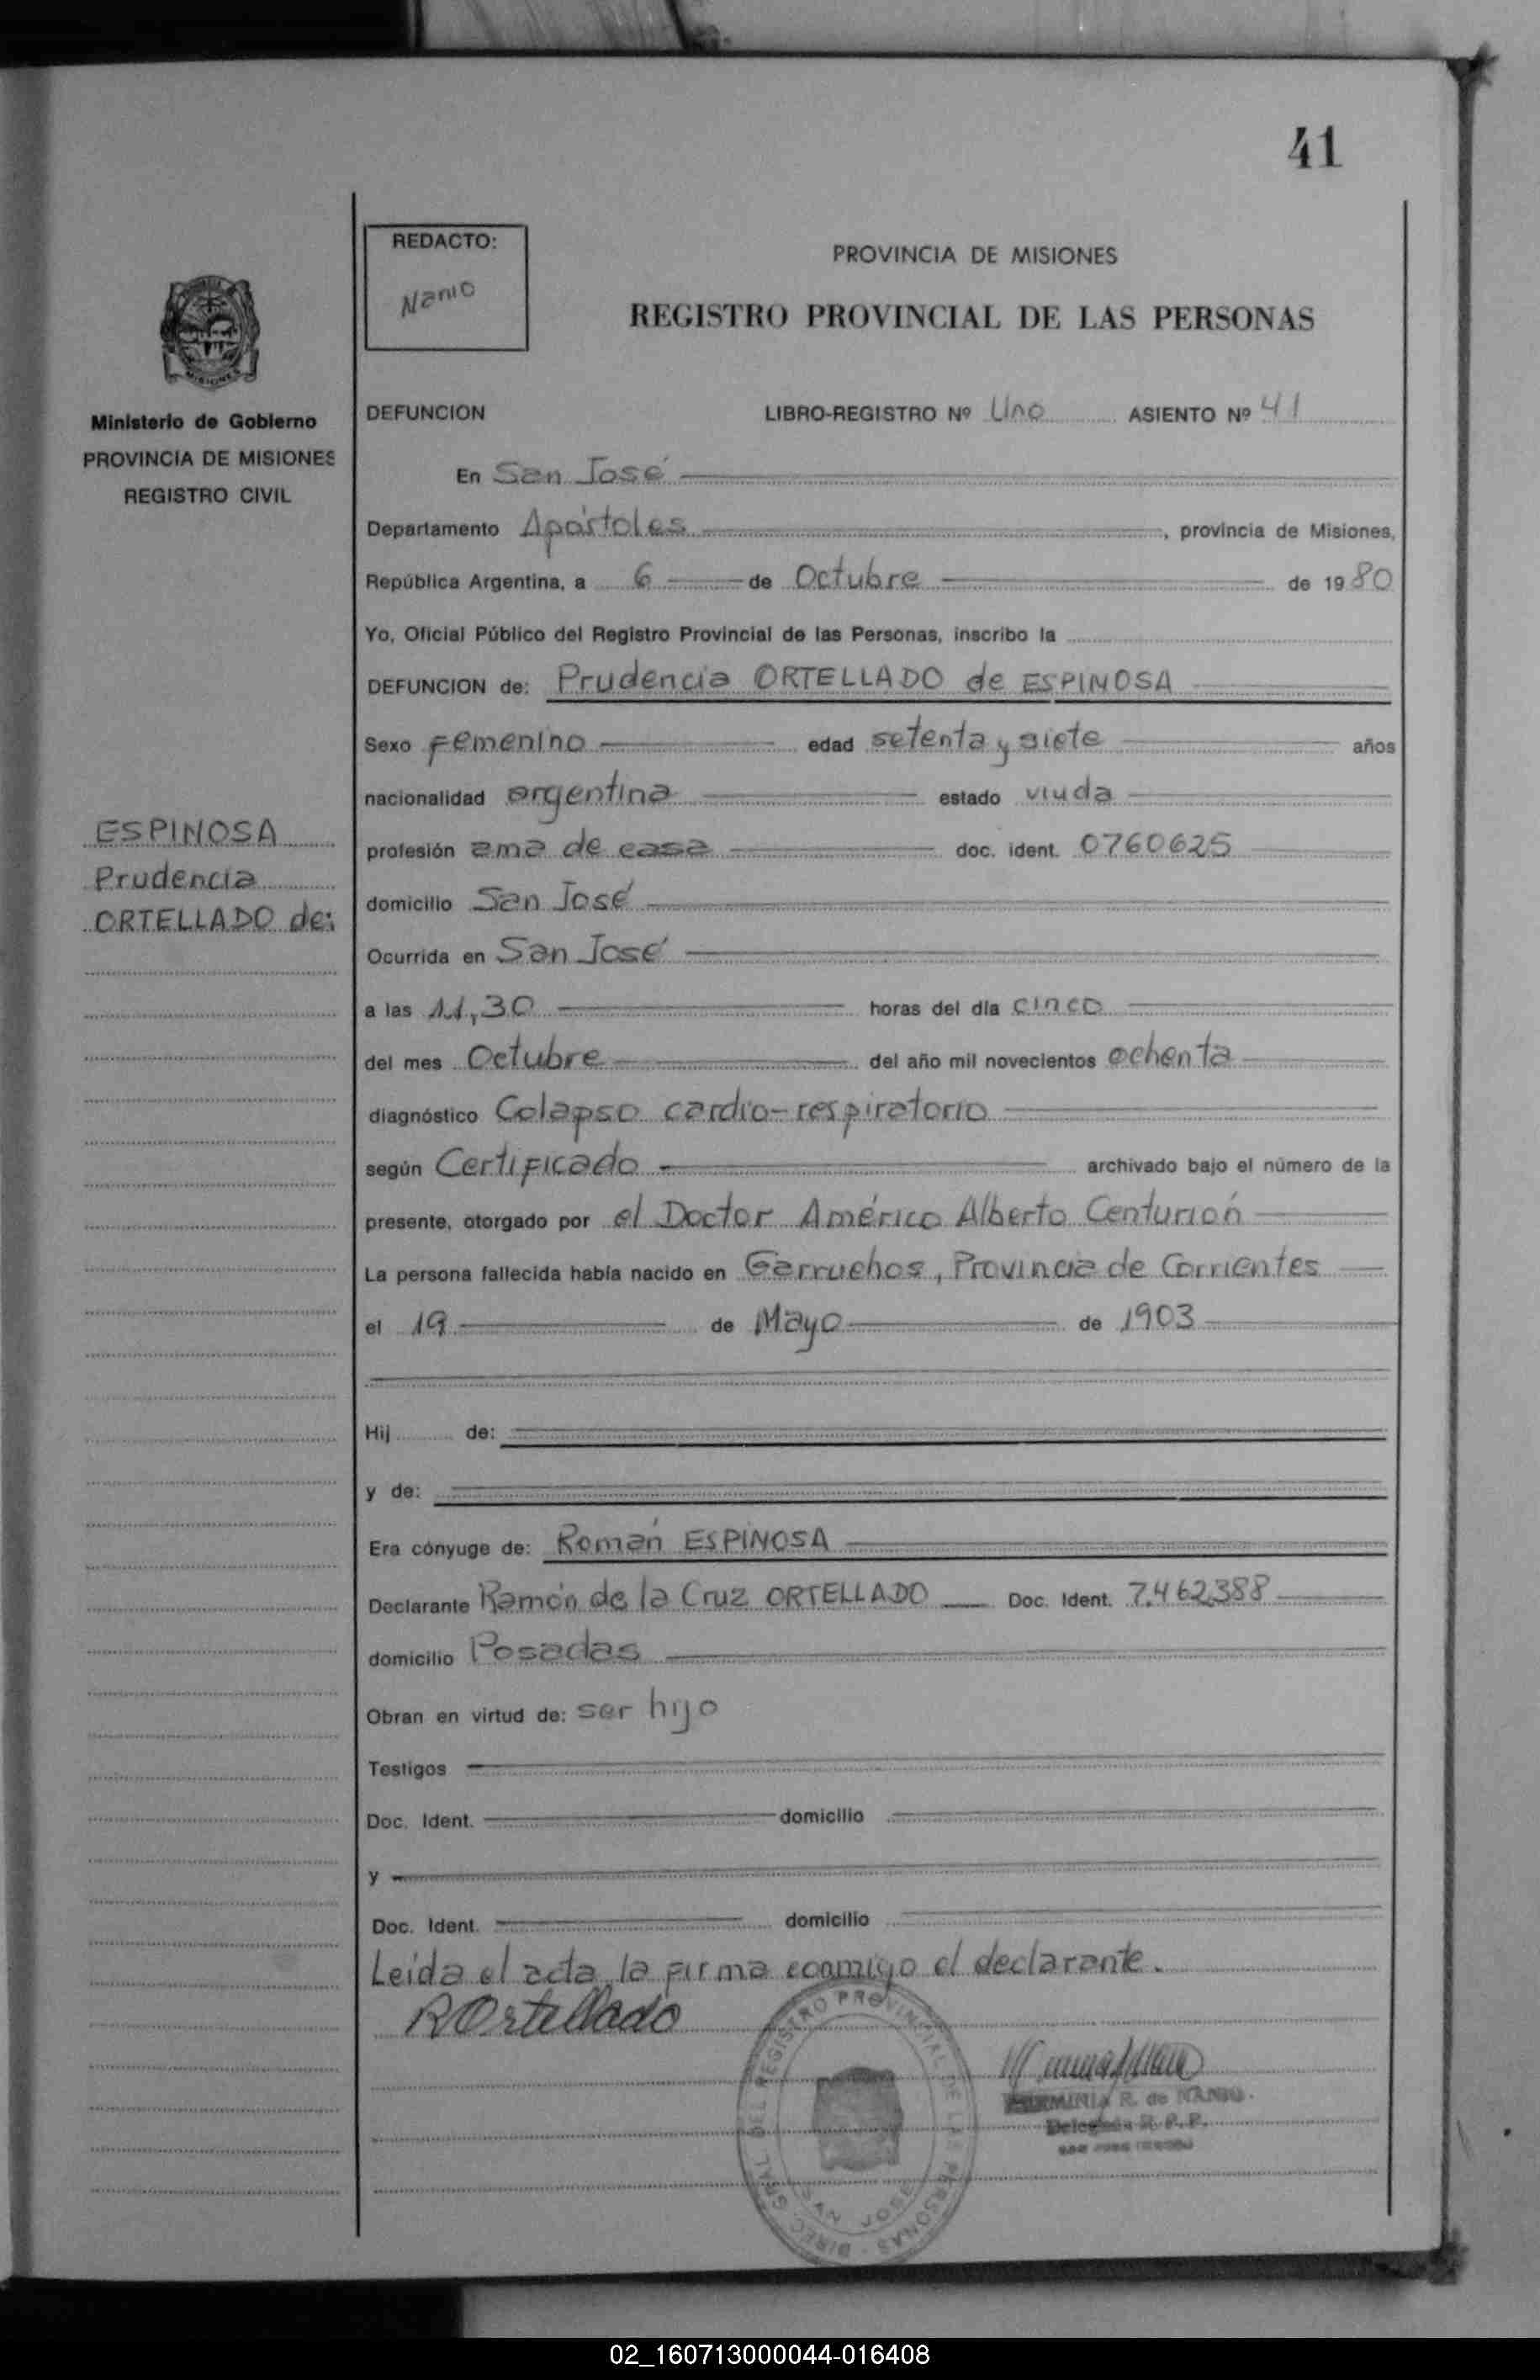 41
REDACTO:
Nanio
PROVINCIA DE MISIONES
REGISTRO PROVINCIAL DE LAS PERSONAS
MISIONES
Ministerio de Gobierno
PROVINCIA DE MISIONES
REGISTRO CIVIL
DEFUNCION LIBRO-REGISTRO Nº Uno ASIENTO Nº 41
En San José
Departamento Apóstoles, provincia de Misiones,
República Argentina, a 6 de Octubre de 1980
Yo, Oficial Público del Registro Provincial de las Personas, inscribo la
DEFUNCION de: Prudencia ORTELLADO de ESPINOSA
Sexo Femenino edad setenta y siete años
nacionalidad argentina estado viuda
ESPINOSA
Prudencia
ORTELLADO de:
profesión ama de casa doc. ident. 0760625
domicilio San José
Ocurrida en San José
a las 11,30 horas del día cinco
del mes Octubre del año mil novecientos ochenta
diagnóstico Colapso cardio-respiratorio
según Certificado archivado bajo el número de la
presente, otorgado por el Doctor Américo Alberto Centurión
La persona fallecida había nacido en Garruchos, Provincia de Corrientes
el 19 de Mayo de 1903
Hij de:
y de:
Era cónyuge de: Román ESPINOSA
Declarante Ramón de la Cruz ORTELLADO Doc. Ident. 7.462388
domicilio Posadas
Obran en virtud de: ser hijo
Testigos
Doc. Ident. domicilio
y
Doc. Ident. domicilio
Leida el acta la firma conmigo el declarante.
ROrtellado
DIREC. GRAL. DEL REGISTRO PROVINCIAL DE LAS PERSONAS
SAN JOSE
HERMINIA R. de NANIO.
Delegada R. P. P.
02_160713000044-016408